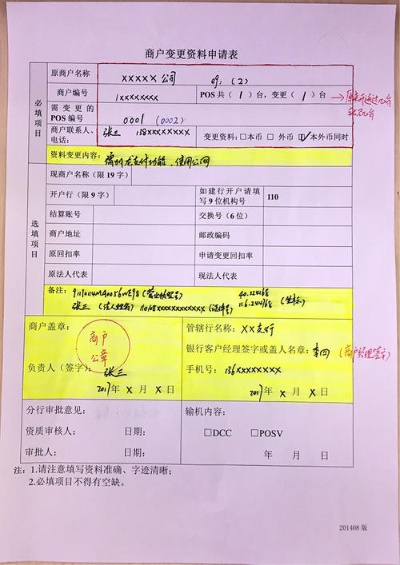 商户变更资料申请表
必填项目
原商户名称 XXXXX 公司
商户编号 1XXXXXXXX POS共( 1 )台,变更( 1 )台
需变更的POS编号 0001 (0002)
商户联系人、电话: 张三、138XXXXXXXX 变更资料:□本币 □外币 ☑本外币同时
资料变更内容:
选填项目
现商户名称(限19字)
开户行(限9字) 如建行开户请填写9位机构号 110
结算账号 交换号(6位)
商户地址 邮政编码
原回扣率 申请变更回扣率
原法人代表 现法人代表
备注:
张三
商户盖章: 商户公章
负责人(签字): 张三
2017年 X 月 X 日
管辖行名称: XX支行
银行客户经理签字或盖人名章: 李四 (客户经理签字)
手机号: 136XXXXXXXX
2017年 X 月 X 日
分行审批意见: 输机内容:
资质审核人: 日期: □DCC □POSV
审批人: 日期: 年 月 日
注:1.请注意填写资料准确、字迹清晰;
2.必填项目不得有空缺。
201408 版